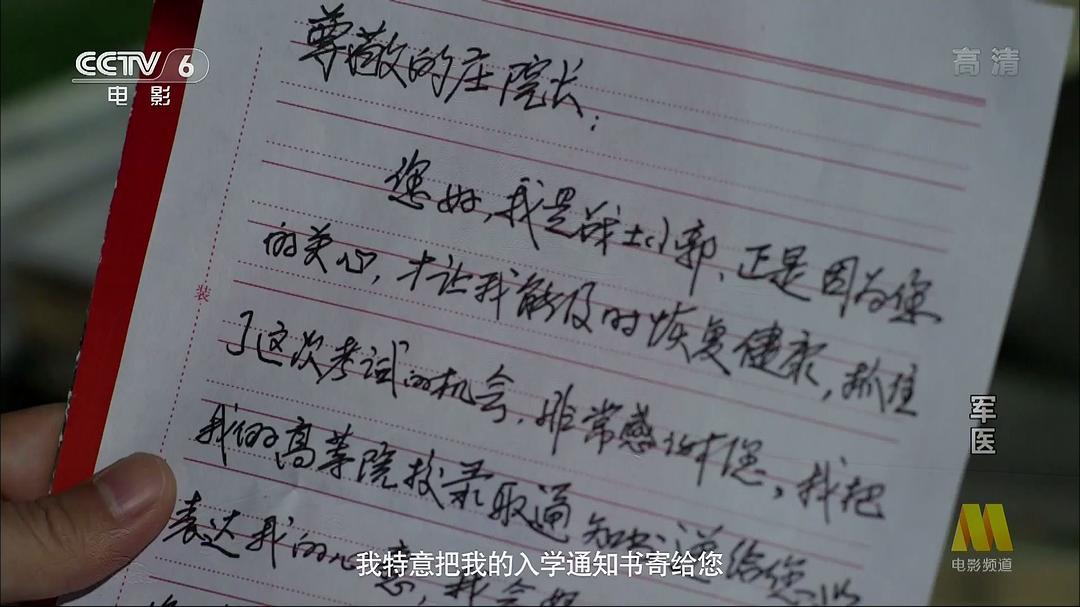 CCTV 6
电影
高清
尊敬的庄院长:
您好,我是战士小郭,正是因为您
的关心,才让我能及时恢复健康,抓住
了这次考试的机会,非常感谢您,我把
我的高等院校录取通知书送给您以
表达我的心意,我会
装
军医
我特意把我的入学通知书寄给您
电影频道